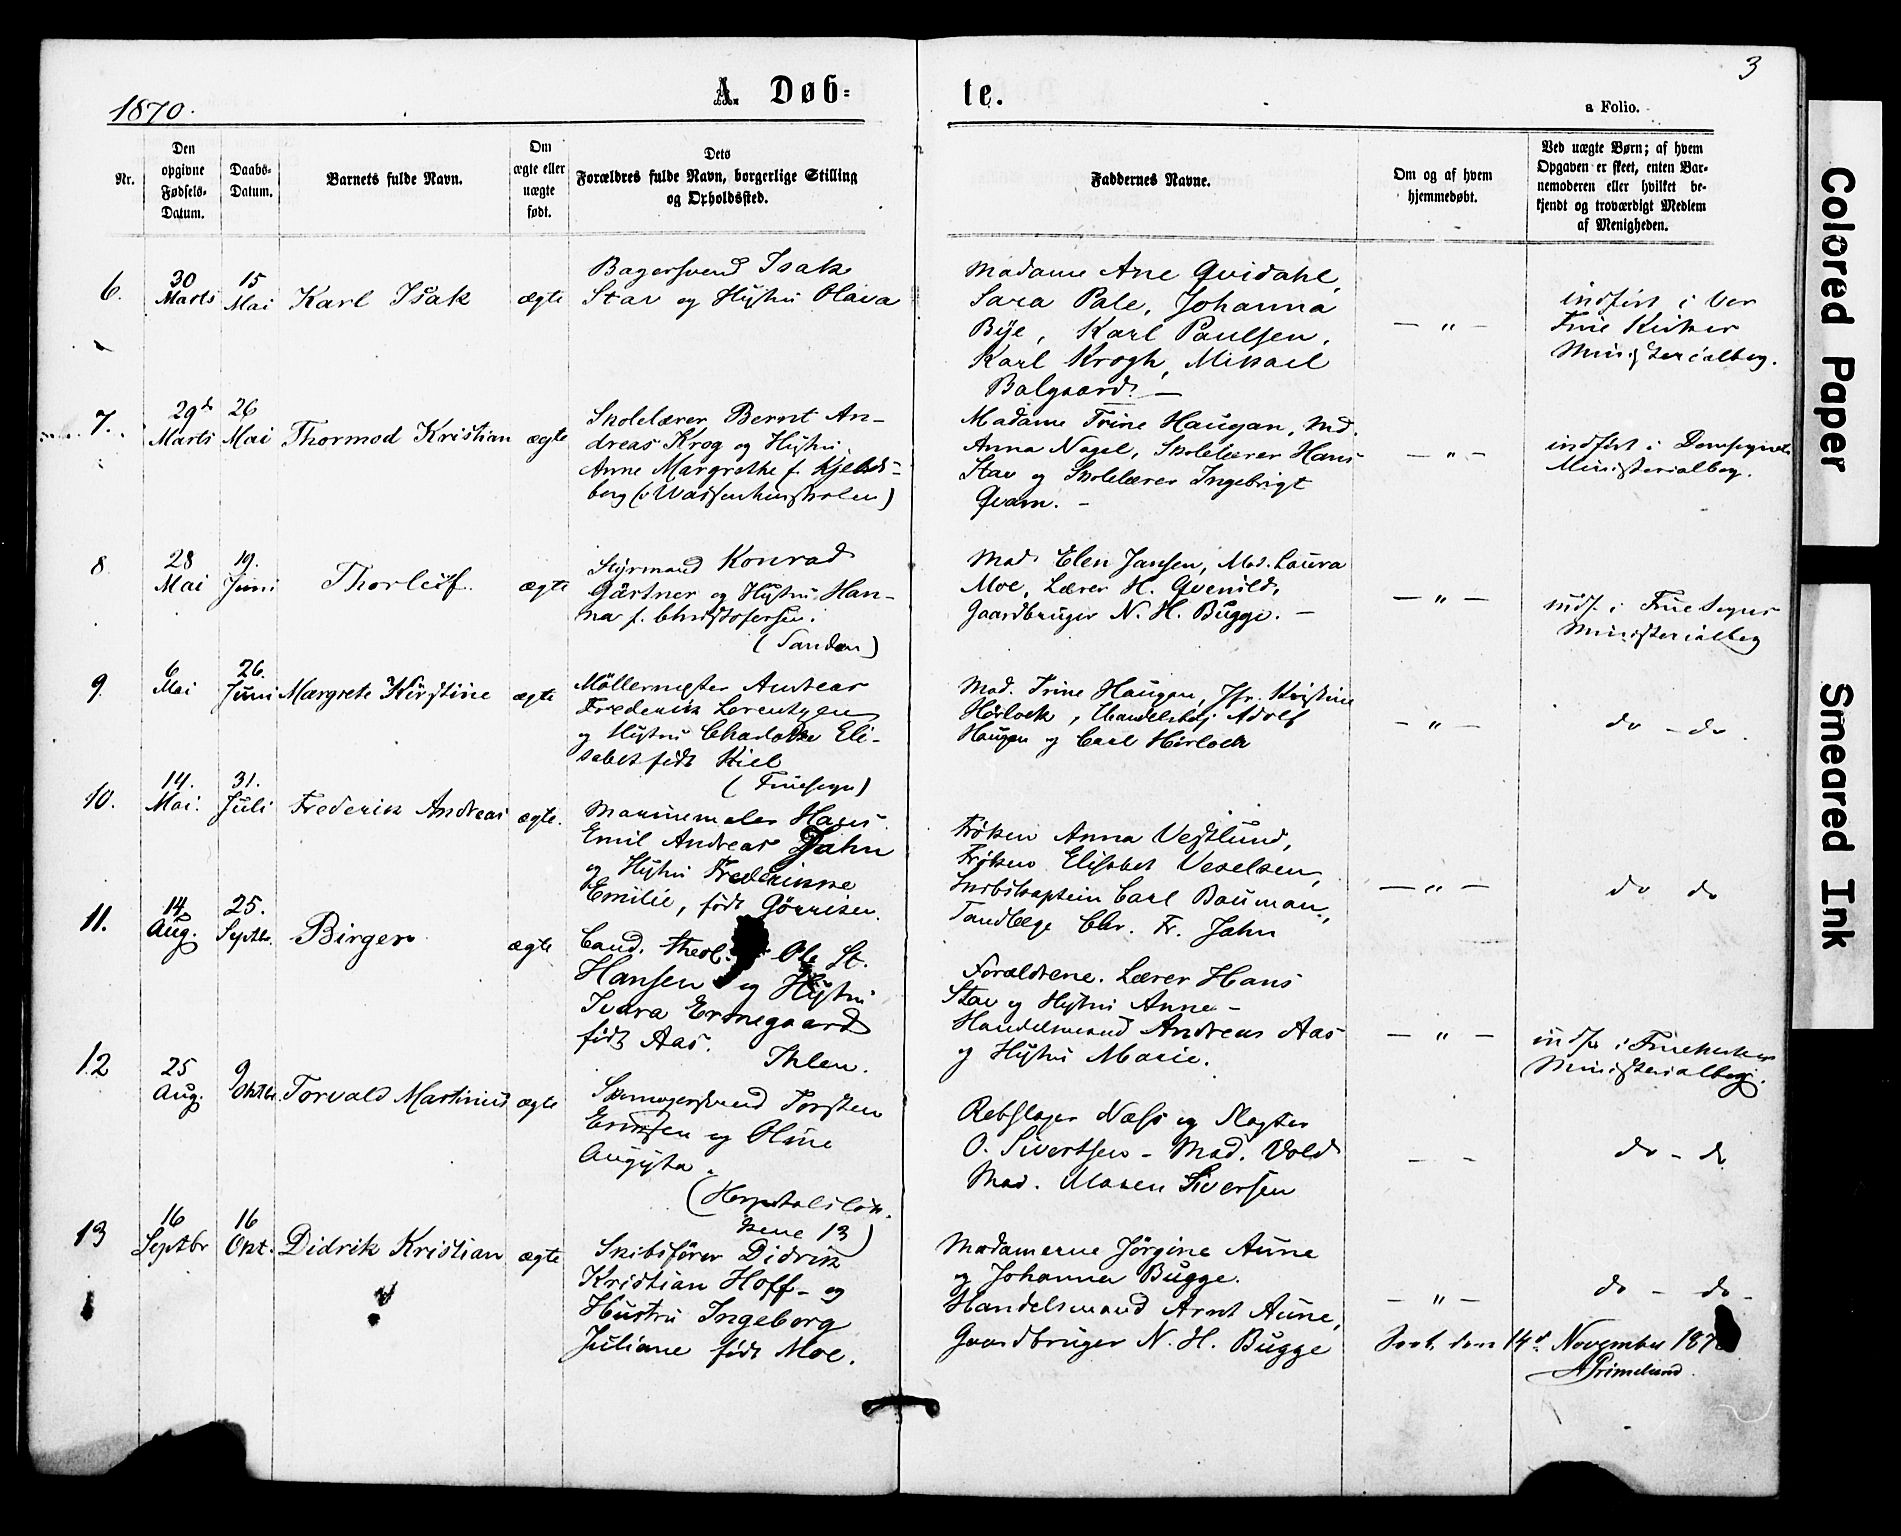 3
1870.
A Døb=
te.
a Folio.
Nr.
Den
opgivne
Fødsels-
Datum.
Daabs-
Datum.
Barnets fulde Navn.
Om
ægte eller
uægte
født.
Dets
Forældres fulde Navn, borgerlige Stilling
og Opholdssted.
Faddernes Navne.
Om og af hvem
hjemmedøbt.
Ved uægte Børn; af hvem
Opgaven er skeet, enten Bar-
nemoderen eller hvilket be-
kjendt og troværdigt Medlem
af Menigheden.
6.
30
Marts
15
Mai
Karl Isak
ægte
Bagersvend Isak
Stav og Hustru Olava
Madame Ane Qvidahl,
Sara Pale, Johanna
Bye, Karl Paulsen,
Karl Krogh, Mikael
Balgaard. —
— " —
indført i Vor
Frue Kirkes
Ministerialbog.
7.
29de
Marts
26
Mai
Thormod Kristian
ægte
Skolelærer Bernt An-
dreas Krog og Hustru
Anne Margrethe f. Kjelds-
berg (v Waisenhusskolen)
Madame Trine Haugan, Md.
Anna Nagel, Skolelærer Hans
Stav og Skolelærer Ingebrigt
Qvam. -
— " —
indført i Domsognets
Ministerialbog.
8
28
Mai
19.
Juni
Thorleif.
ægte
Styrmand Konrad
Gärtner og Hustru Han-
na f. Christofersen.
(Sanden)
Mad. Elen Jansen, Mad. Laura
Moe, Lærer H. Qvenild,
Gaardbruger N. H. Bugge. —
— " —
indf. i Frue Sogns
Ministerialbog
9.
6
Mai
26.
Juni
Margrete Kirstine
ægte
Møllermester Andreas
Frederik Lorentzen
og Hustru Charlotte Eli-
sabet født Kiel
(Fruesogn)
Mad. Trine Haugan, Jfr. Kristine
Hørlock, Handelsbetj. Adolf
Haugan og Carl Hørlock
— " —
do — do.
10.
14.
Mai.
31.
Juli
Frederik Andreas
ægte.
Marinemaler Hans
Emil Andreas Jahn
og Hustru Frederikke
Emilie, født Görrisen.
Frøken Anna Vestlund,
Frøken Elisabet Veselsen,
Skibskaptein Carl Bauman,
Tandlæge Chr. Fr. Jahn
— " —
do do
11.
14
Aug.
25.
Septbr.
Birger
ægte
Cand. theol. Ole St.
Hansen og Hustru
Ivara Ermegaard
født Aas.
Ihlen.
Forældrene. Lærer Hans
Stav og Hustru Anne -
Handelsmand Andreas Aas
og Hustru Marie.
— " —
indf. i Fruekirkes
Ministerialbog.
12
25
Aug.
9
Oktbr
Torvald Martinius
ægte
Skomagersvend Torsten
Eriksen og Oline
Augusta.
(Hospitalsløk-
kene 13)
Rebslager Næss og Slagter
O. Sivertsen - Mad. Vold
Mad. Maren Siversen
— —
do - do
13
16
Septbr
16
Okt.
Didrik Kristian
ægte
Skibsfører Didrik
Kristian Hoff - og
Hustru Ingeborg
Juliane født Moe.
Madamerne Jørgine Aune
og Johanna Bugge.
Handelsmand Arnt Aune,
Gaardbruger N. H. Bugge
— " —
do - do -
den 14d. November 187
AGrimelund
Colored Paper
Smeared Ink